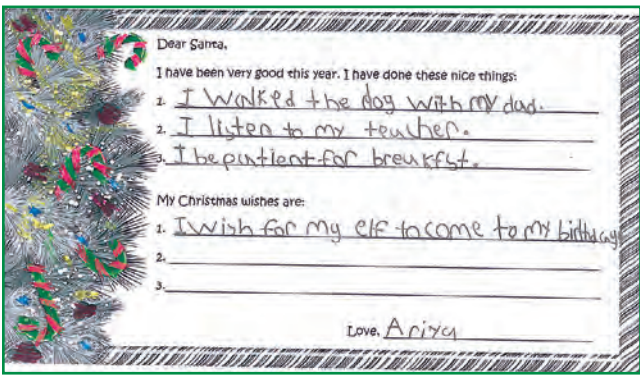 Dear Santa,
I have been very good this year. I have done these nice things:
1. I Walked the dog with my dad.
2. I listen to my teacher.
3. I be patient for breakfst.
My Christmas wishes are:
1. I wish for my elf to come to my birthday
2.
3.
Love, Ariya